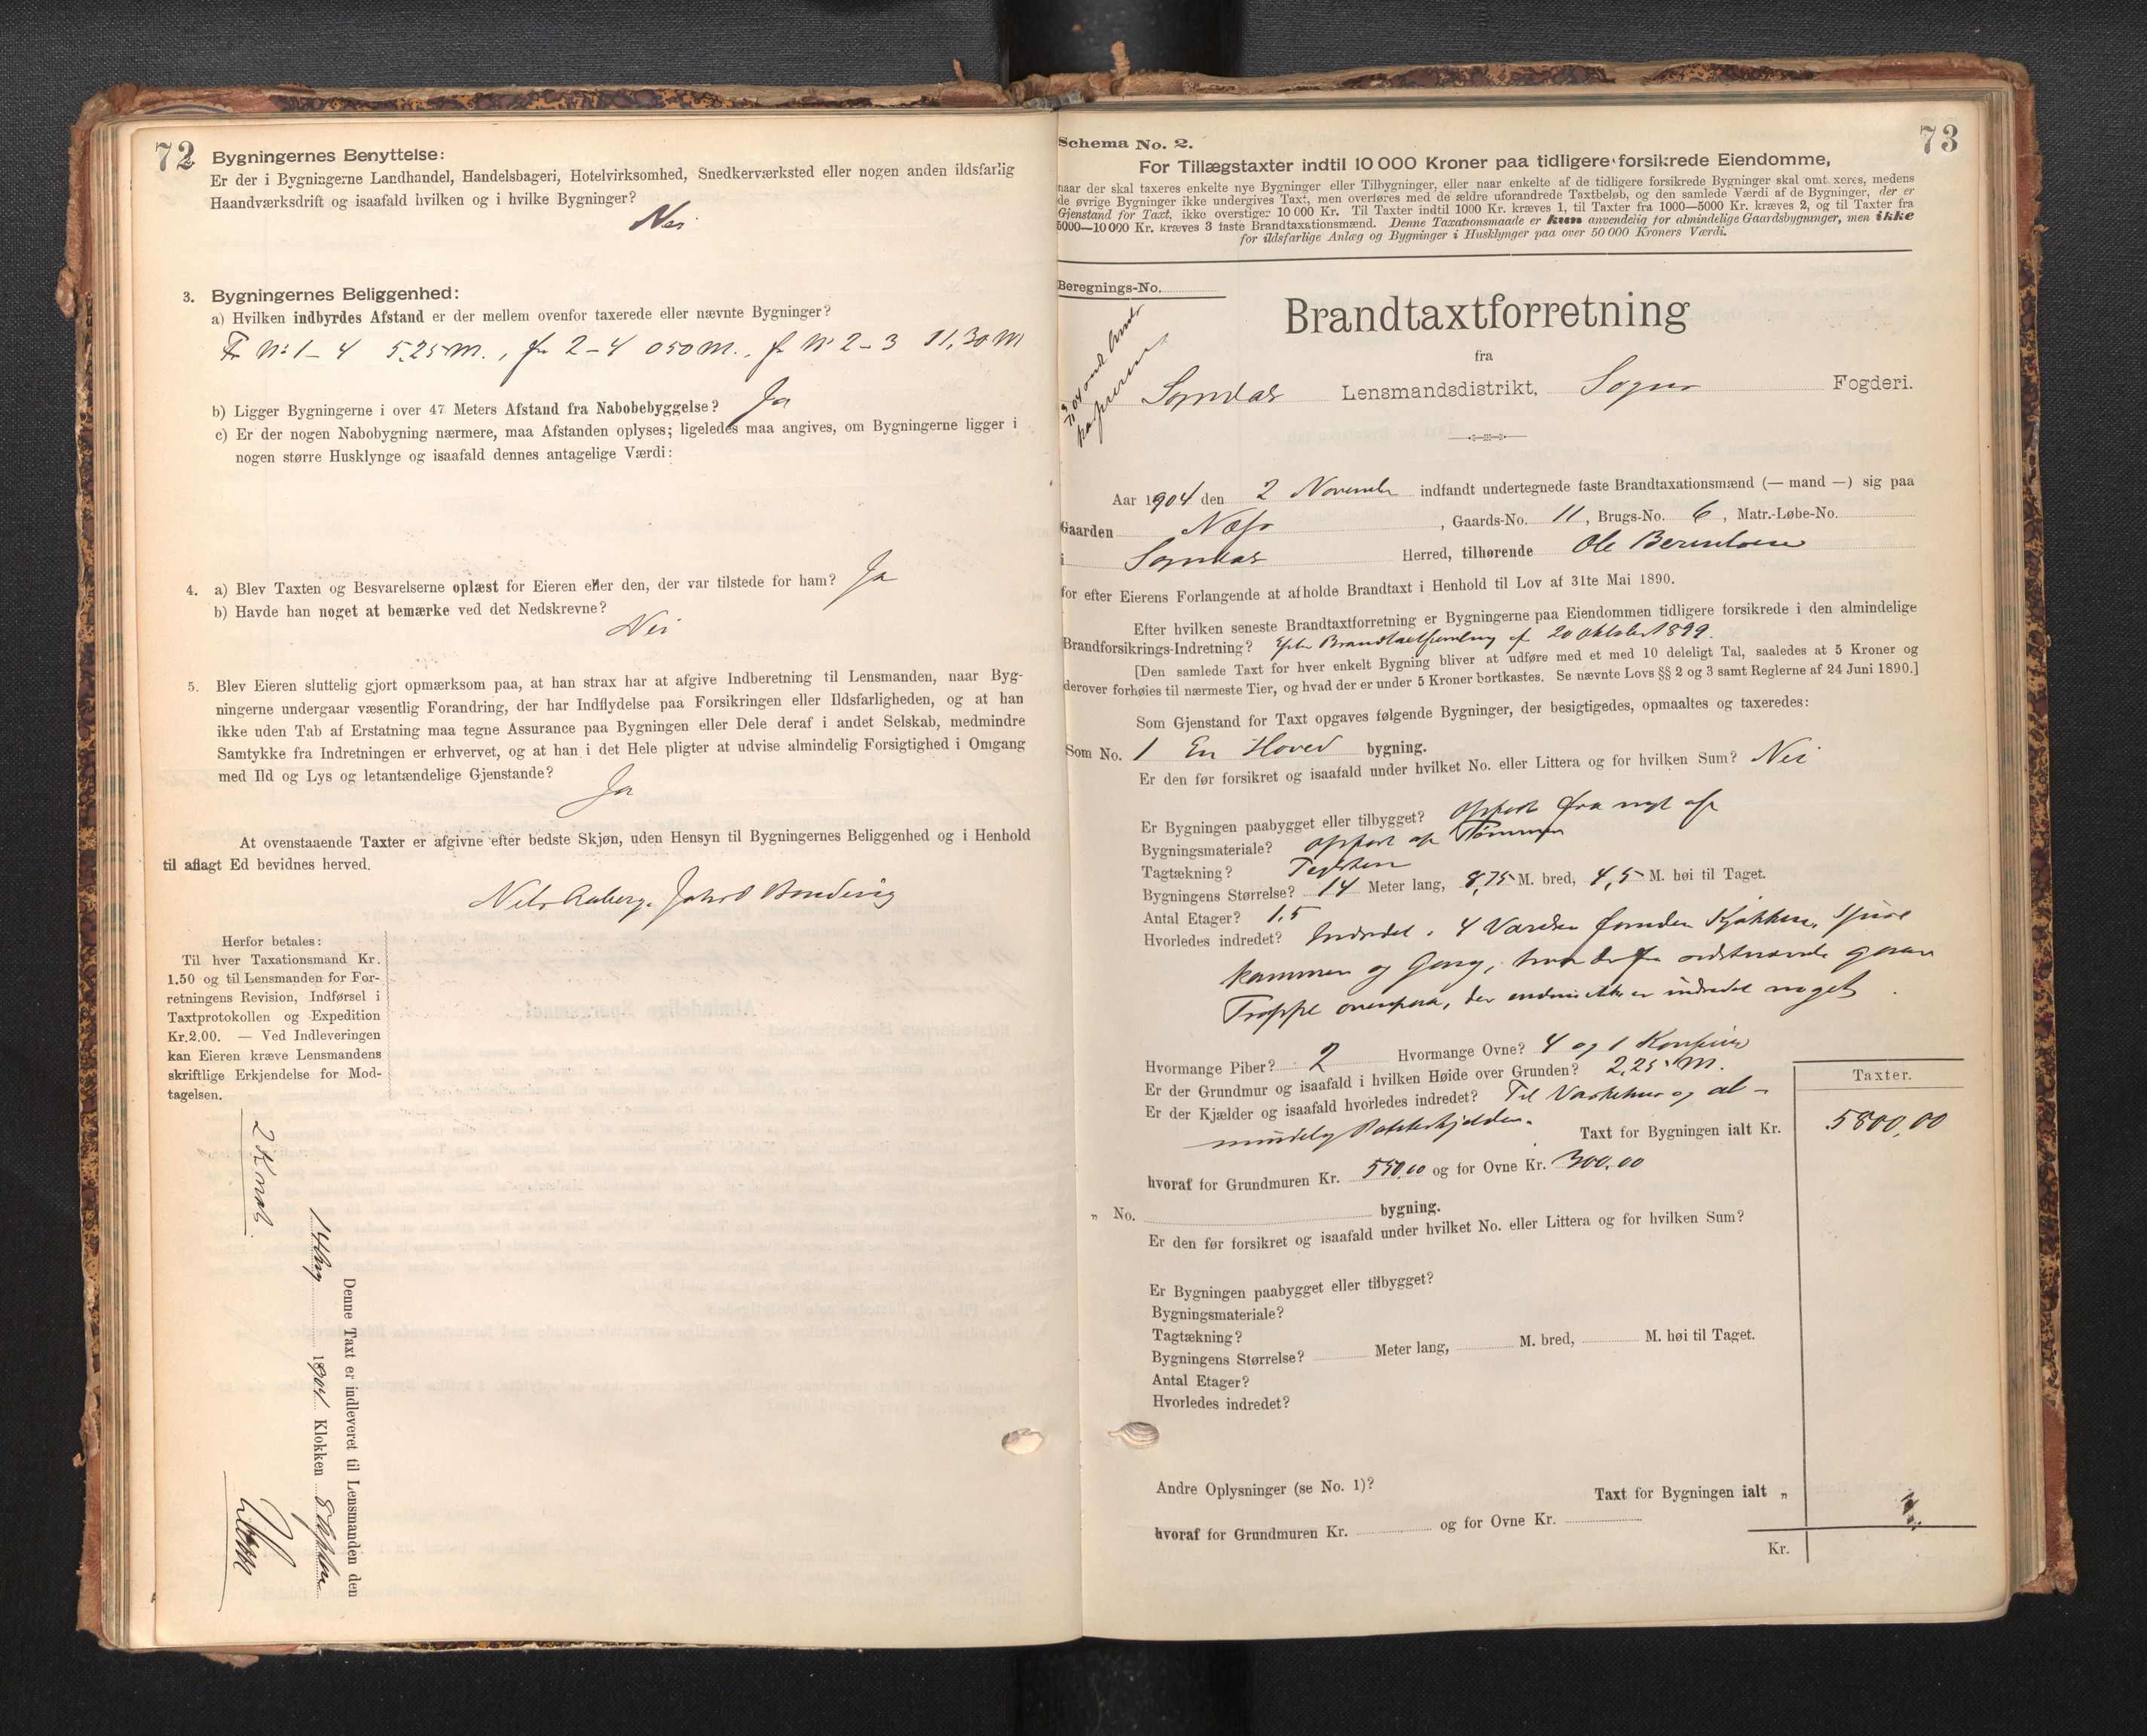 72
Bygningernes Benyttelse:
Er der i Bygningerne Landhandel, Handelsbageri, Hotelvirksomhed, Snedkerværksted eller nogen anden ildsfarlig
Haandværksdrift og isaafald hvilken og i hvilke Bygninger?
Nei
3. Bygningernes Beliggenhed:
a) Hvilken indbyrdes Afstand er der mellem ovenfor taxerede eller nævnte Bygninger?
Fr No 1-4 5,25 M., fr 2-4 050 M., fr No 2-3 11,30 M
b) Ligger Bygningerne i over 47 Meters Afstand fra Nabobebyggelse? Ja
c) Er der nogen Nabobygning nærmere, maa Afstanden oplyses; ligeledes maa angives, om Bygningerne ligger i
nogen større Husklynge og isaafald dennes antagelige Værdi:
4. a) Blev Taxten og Besvarelserne oplæst for Eieren eller den, der var tilstede for ham? Ja
b) Havde han noget at bemærke ved det Nedskrevne?
Nei
5. Blev Eieren sluttelig gjort opmærksom paa, at han strax har at afgive Indberetning til Lensmanden, naar Byg-
ningerne undergaar væsentlig Forandring, der har Indflydelse paa Forsikringen eller Ildsfarligheden, og at han
ikke uden Tab af Erstatning maa tegne Assurance paa Bygningen eller Dele deraf i andet Selskab, medmindre
Samtykke fra Indretningen er erhvervet, og at han i det Hele pligter at udvise almindelig Forsigtighed i Omgang
med Ild og Lys og letantændelige Gjenstande?
Ja
At ovenstaaende Taxter er afgivne efter bedste Skjøn, uden Hensyn til Bygningernes Beliggenhed og i Henhold
til aflagt Ed bevidnes herved.
Nils Aaberge
Herfor betales:
Til hver Taxationsmand Kr.
1.50 og til Lensmanden for For-
retningens Revision, Indførsel i
Taxtprotokollen og Expedition
Kr.2.00. — Ved Indleveringen
kan Eieren kræve Lensmandens
skriftlige Erkjendelse for Mod-
tagelsen.
Denne Taxt er indleveret til Lensmanden den
1904 Klokken 8
73
Schema No. 2.
For Tillægstaxter indtil 10 000 Kroner paa tidligere forsikrede Eiendomme,
naar der skal taxeres enkelte nye Bygninger eller Tilbygninger, eller naar enkelte af de tidligere forsikrede Bygninger skal omtaxeres, medens
de øvrige Bygninger ikke undergives Taxt, men overføres med de ældre uforandrede Taxtbeløb, og den samlede Værdi af de Bygninger, der er
Gjenstand for Taxt, ikke overstiger 10 000 Kr. Til Taxter indtil 1000 Kr. kræves 1, til Taxter fra 1000—5000 Kr. kræves 2, og til Taxter fra
5000—10 000 Kr. kræves 3 faste Brandtaxationsmænd. Denne Taxationsmaade er kun anvendelig for almindelige Gaardsbygninger, men ikke
for ildsfarlige Anlæg og Bygninger i Husklynger paa over 50 000 Kroners Værdi.
Beregnings-No.
Brandtaxtforretning
fra
Sogndal Lensmandsdistrikt, Sogns Fogderi.
Aar 1904 den 2 November indfandt undertegnede faste Brandtaxationsmænd (— mand —) sig paa
Gaarden Næss, Gaards-No. 11, Brugs-No. 6, Matr.-Løbe-No.
i Sogndal Herred, tilhørende Ole Berentsen
for efter Eierens Forlangende at afholde Brandtaxt i Henhold til Lov af 31te Mai 1890.
Efter hvilken seneste Brandtaxtforretning er Bygningerne paa Eiendommen tidligere forsikrede i den almindelige
Brandforsikrings-Indretning? Efter Brandtaxtforretning af 20 Oktober 1899.
[Den samlede Taxt for hver enkelt Bygning bliver at udføre med et med 10 deleligt Tal, saaledes at 5 Kroner og
derover forhøies til nærmeste Tier, og hvad der er under 5 Kroner bortkastes. Se nævnte Lovs §§ 2 og 3 samt Reglerne af 24 Juni 1890.]
Som Gjenstand for Taxt opgaves følgende Bygninger, der besigtigedes, opmaaltes og taxeredes:
Som No. 1 En Hoved bygning.
Er den før forsikret og isaafald under hvilket No. eller Littera og for hvilken Sum? Nei
Er Bygningen paabygget eller tilbygget? opført fra nyt af
Bygningsmateriale? opført af Tømmer
Tagtækning? Teglsten
Bygningens Størrelse? 14 Meter lang, 8,75 M. bred, 4,5 M. høi til Taget.
Antal Etager? 1,5
Hvorledes indredet? Indredet i 4 Værelser foruden Kjøkken, Spise
kammer og Gang, hvor der fra sidstnævnte gaar
Trappe ovenpaa, der endnu ikke er indredet noget.
Hvormange Piber? 2 Hvormange Ovne? 4 og 1 Komfur
Er der Grundmur og isaafald i hvilken Høide over Grunden? 2,25 M.
Er der Kjælder og isaafald hvorledes indredet? Til Vaskehus og al-
mindelig Potetkjelder.
Taxt for Bygningen ialt Kr.
Taxter.
5800,00
hvoraf for Grundmuren Kr. 550,00 og for Ovne Kr. 300,00
„ No. bygning.
Er den før forsikret og isaafald under hvilket No. eller Littera og for hvilken Sum?
Er Bygningen paabygget eller tilbygget?
Bygningsmateriale?
Tagtækning?
Bygningens Størrelse? Meter lang, M. bred, M. høi til Taget.
Antal Etager?
Hvorledes indredet?
Andre Oplysninger (se No. 1)?
Taxt for Bygningen ialt „
hvoraf for Grundmuren Kr. og for Ovne Kr.
Kr.